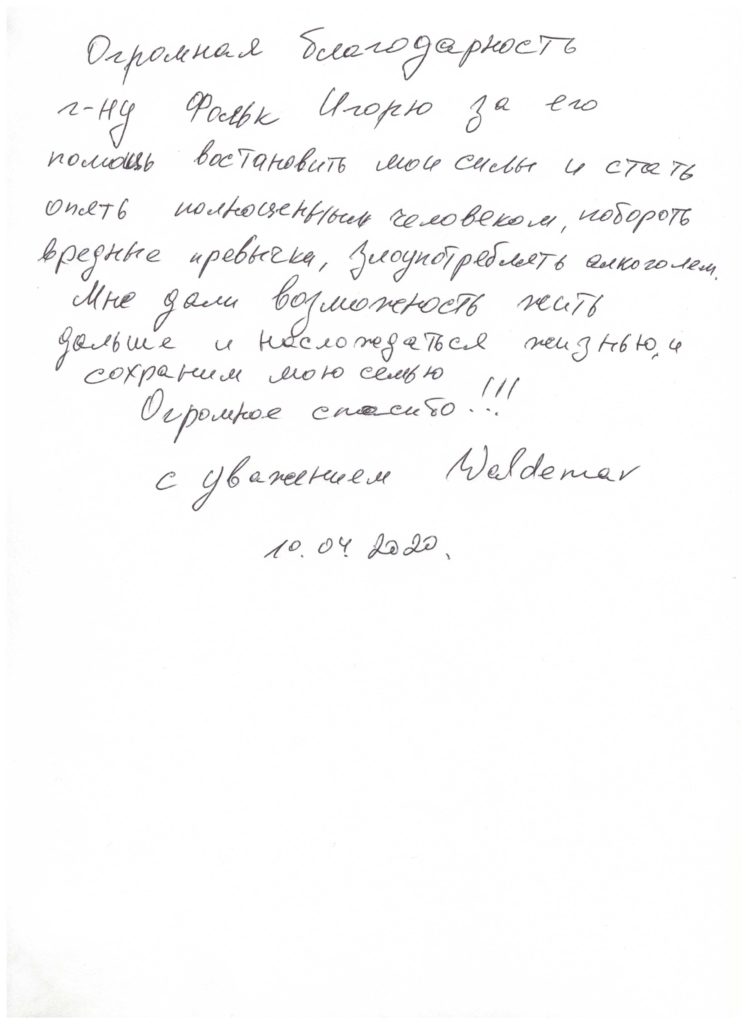 Огромная благодарность
г-ну Фольк Игорю за его
помощь востановить мои силы и стать
опять полноценным человеком, побороть
вредные превычка, злоупотреблять алкоголем.
Мне дали возможность жить
дальше и насложедаться жизнью, и
сохраним мою семью
Огромное спасибо!!!
с уважением Waldemar
10.04.2020.